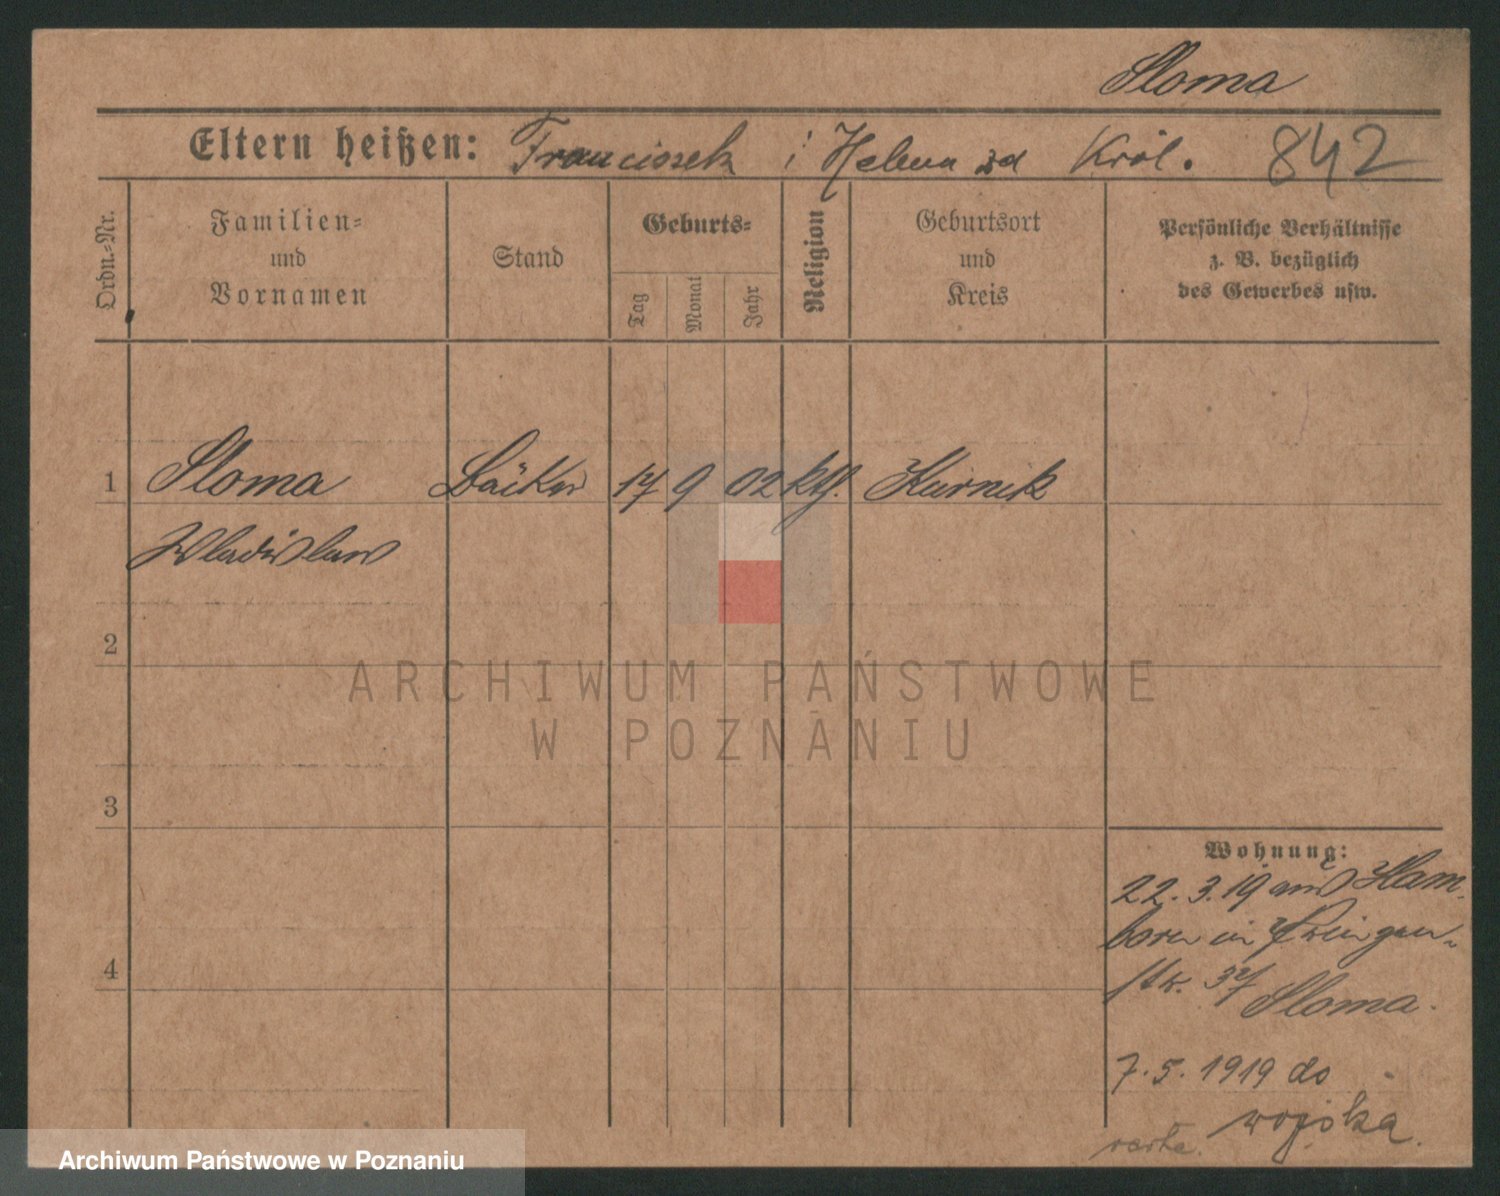 Sloma
Eltern heißen: Franciszek i Helena zd Król. 842
Ordn.-Nr.
Familien-
und
Vornamen
Stand
Geburts-
Tag
Monat
Jahr
Religion
Geburtsort
und
Kreis
Persönliche Verhältnisse
z. B. bezüglich
des Gewerbes usw.
1 Sloma Bäcker 17 9 02 kth. Kurnik
Wladislaw
2
ARCHIWUM PAŃSTWOWE
W POZNANIU
3
Wohnung:
22. 3. 19 aus Ham-
born in
str. 37 Sloma.
4
7. 5. 1919 do
wojska.
Archiwum Państwowe w Poznaniu